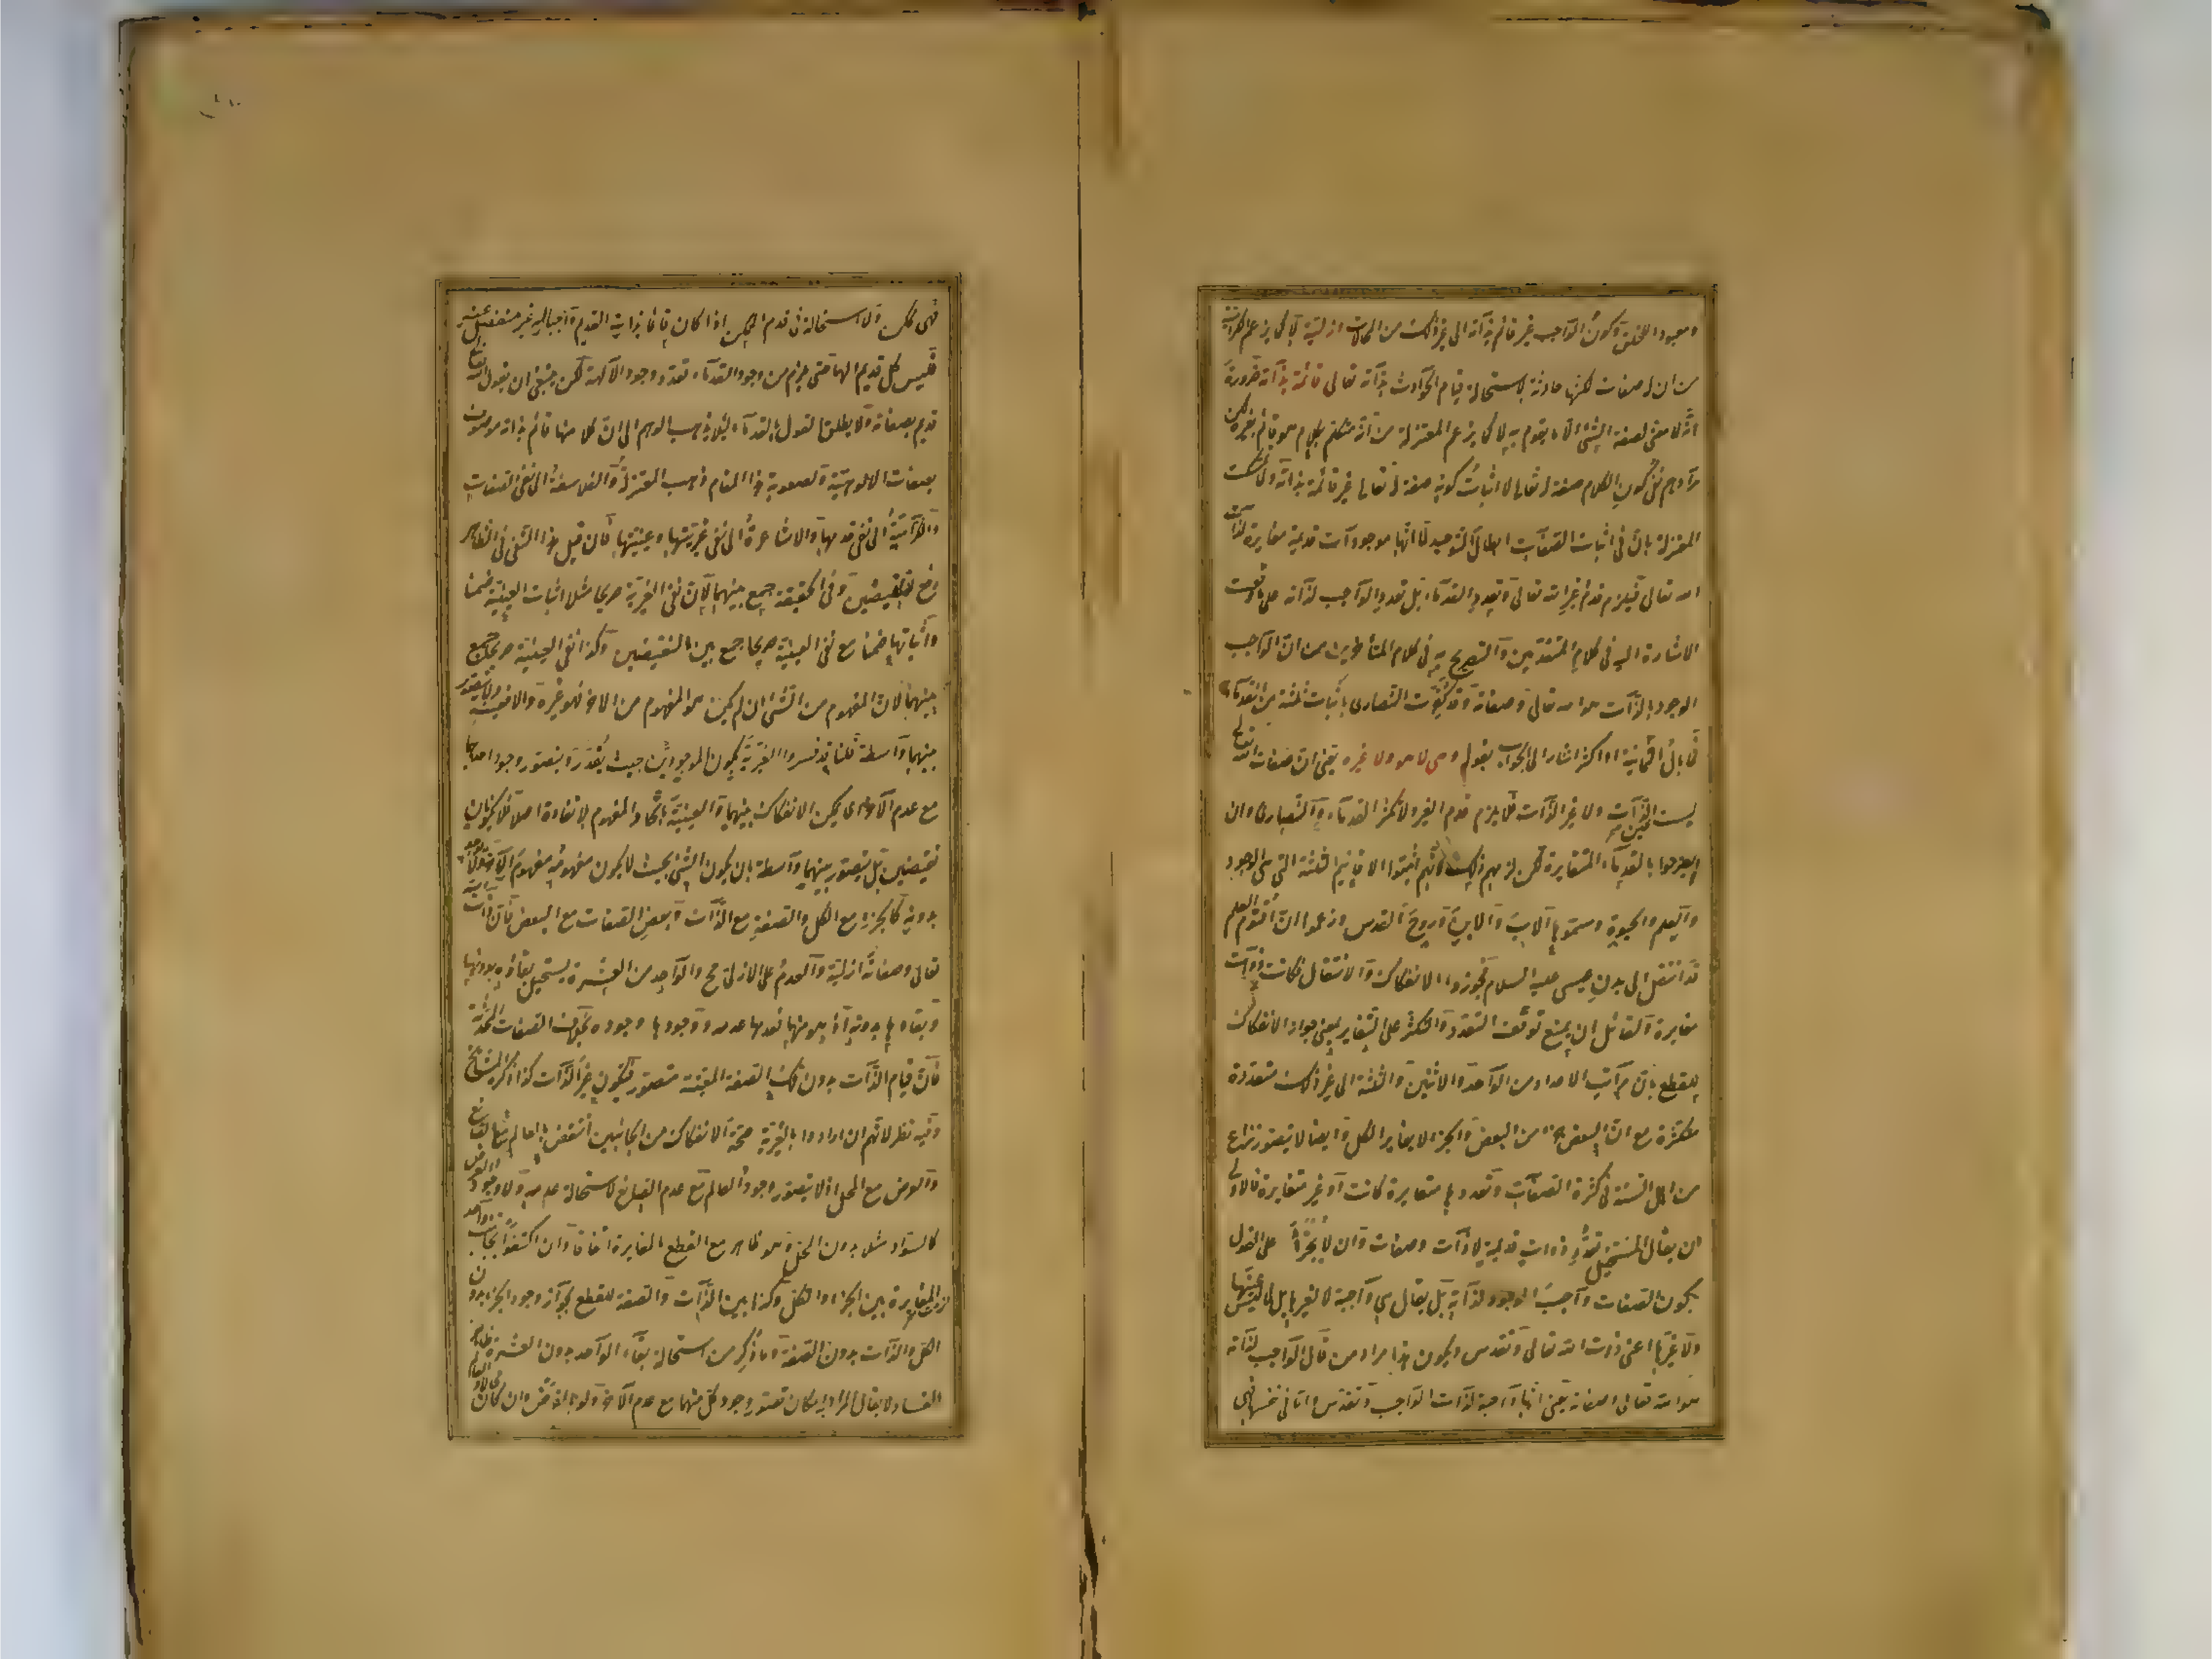 ومعبودا للخلق وكون الواجب غير قائم بذاته الى غير ذلك من المحالات ازلية لا كما يزعم الكرامية
من ان له صفات لكنها حادثة لاستحالة قيام الحوادث بذاته تعالى قائمة بذاته ضرورة
انه لا معنى لصفة الشئ الا ما يقوم به لا كما يزعم المعتزلة من انه متكلم بكلام هو قائم بغيره لكن
مرادهم نفى كون الكلام صفة له تعالى لا اثبات كونه صفة له تعالى غير قائمة بذاته ولما تمسكت
المعتزلة بان فى اثبات الصفات ابطال التوحيد لما انها موجودات قديمة مغايرة لذات
الله تعالى فيلزم قدم غير الله تعالى وتعدد القدماء بل تعدد الواجب لذاته على ما وقعت
الاشارة اليه فى كلام المتقدمين والتصريح به فى كلام المتأخرين من ان الواجب
الوجود بالذات هو الله تعالى وصفاته وقد كفرت النصارى باثبات ثلثة من القدماء
فما بال الثمانية او اكثر اشار الى الجواب بقوله وهى لا هو ولا غيره يعنى ان صفات الله تعالى
ليست عين الذات ولا غير الذات فلا يلزم قدم الغير ولا تكثر القدماء والنصارى وان
لم يصرحوا بالقدماء المتغايرة لكن لزمهم ذلك لانهم اثبتوا الاقانيم الثلثة التى هى الوجود
والعلم والحيوة وسموها الاب والابن وروح القدس وزعموا ان اقنوم العلم
قد انتقل الى بدن عيسى عليه السلام فجوزوا الانفكاك والانتقال فكانت ذوات
مغايرة ولقائل ان يمنع توقف التعدد والتكثر على التغاير بمعنى جواز الانفكاك
للقطع بان مراتب الاعداد من الواحد والاثنين والثلثة الى غير ذلك متعددة
متكثرة مع ان البعض جزء من البعض والجزء لا يغاير الكل وايضا لا يتصور نزاع
من اهل السنة فى كثرة الصفات وتعددها متغايرة كانت او غير متغايرة فالاولى
ان يقال المستحيل تعدد ذوات قديمة لا ذات وصفات وان لا يجترأ على القول
بكون الصفات واجب الوجود لذاته بل يقال هى واجبة لا لغيرها بل لما ليس عينها
ولا غيرها اعنى ذات الله تعالى وتقدس ويكون هذا مراد من قال الواجب لذاته
هو الله تعالى وصفاته يعنى انها واجبة لذات الواجب وتقدس واما فى نفسها فهى
فهى ممكن ولا استحالة فى قدم الممكن اذا كان قائما بذاته القديم واجبا له غير منفصل عنه
فليس كل قديم الها حتى يلزم من وجود القدماء تعدد وجود الآلهة لكن ينبغى ان يقول الله تعالى
قديم بصفاته ولا يطلق القول بالقدماء لئلا يذهب الوهم الى ان كلا منها قائم بذاته موصوف
بصفات الالوهية ولصعوبة هذا المقام ذهب المعتزلة والفلاسفة الى نفى الصفات
والكرامية الى نفى قدمها والاشاعرة الى نفى غيريتها وعينيتها فان قيل هذا النفى فى الظاهر
رفع للنقيضين وفى الحقيقة جمع بينهما لان نفى الغيرية صريحا مثلا اثبات العينية ضمنا
واثباتها ضمنا مع نفى العينية صريحا جمع بين النقيضين وكذا نفى العينية صريحا جمع
بينهما لان المفهوم من الشئ ان لم يكن هو المفهوم من الاخر فهو غيره والا فعينه ولا يتصور
بينهما واسطة قلنا قد فسروا الغيرية بكون الموجودين بحيث يقدر ويتصور وجود احدهما
مع عدم الآخر اى يمكن الانفكاك بينهما والعينية باتحاد المفهوم بلا تفاوت اصلا فلا يكونان
نقيضين بل يتصور بينهما واسطة بان يكون الشئ بحيث لا يكون مفهومه مفهوم الآخر ولا يوجد
بدونه كالجزء مع الكل والصفة مع الذات وبعض الصفات مع البعض فان ذات الله
تعالى وصفاته ازلية والعدم على الازلى مح والواحد من العشرة يستحيل بقاؤه بدونها
وبقاؤها بدونه اذ هو منها فعدمها عدمه ووجودها وجوده بخلاف الصفات المحدثة
فان قيام الذات بدون تلك الصفة المعينة متصور فيكون غير الذات كذا ذكره المشايخ
وفيه نظر لانهم ان ارادوا بالغيرية صحة الانفكاك من الجانبين انتقض بالعالم مع الصانع
والعرض مع المحل اذ لا يتصور وجود العالم مع عدم الصانع لاستحالة عدمه ولا وجود العرض
كالسواد مثلا بدون المحل وهو ظاهر مع القطع بالمغايرة اتفاقا وان اكتفوا بجانب واحد
لزمت المغايرة بين الجزء والكل وكذا بين الذات والصفة للقطع بجواز وجود الجزء بدون
الكل والذات بدون الصفة وما ذكر من استحالة بقاء الواحد بدون العشرة ظاهر
الفساد ولا يقال المراد امكان تصور وجود كل منهما مع عدم الآخر ولو بالفرض وان كان